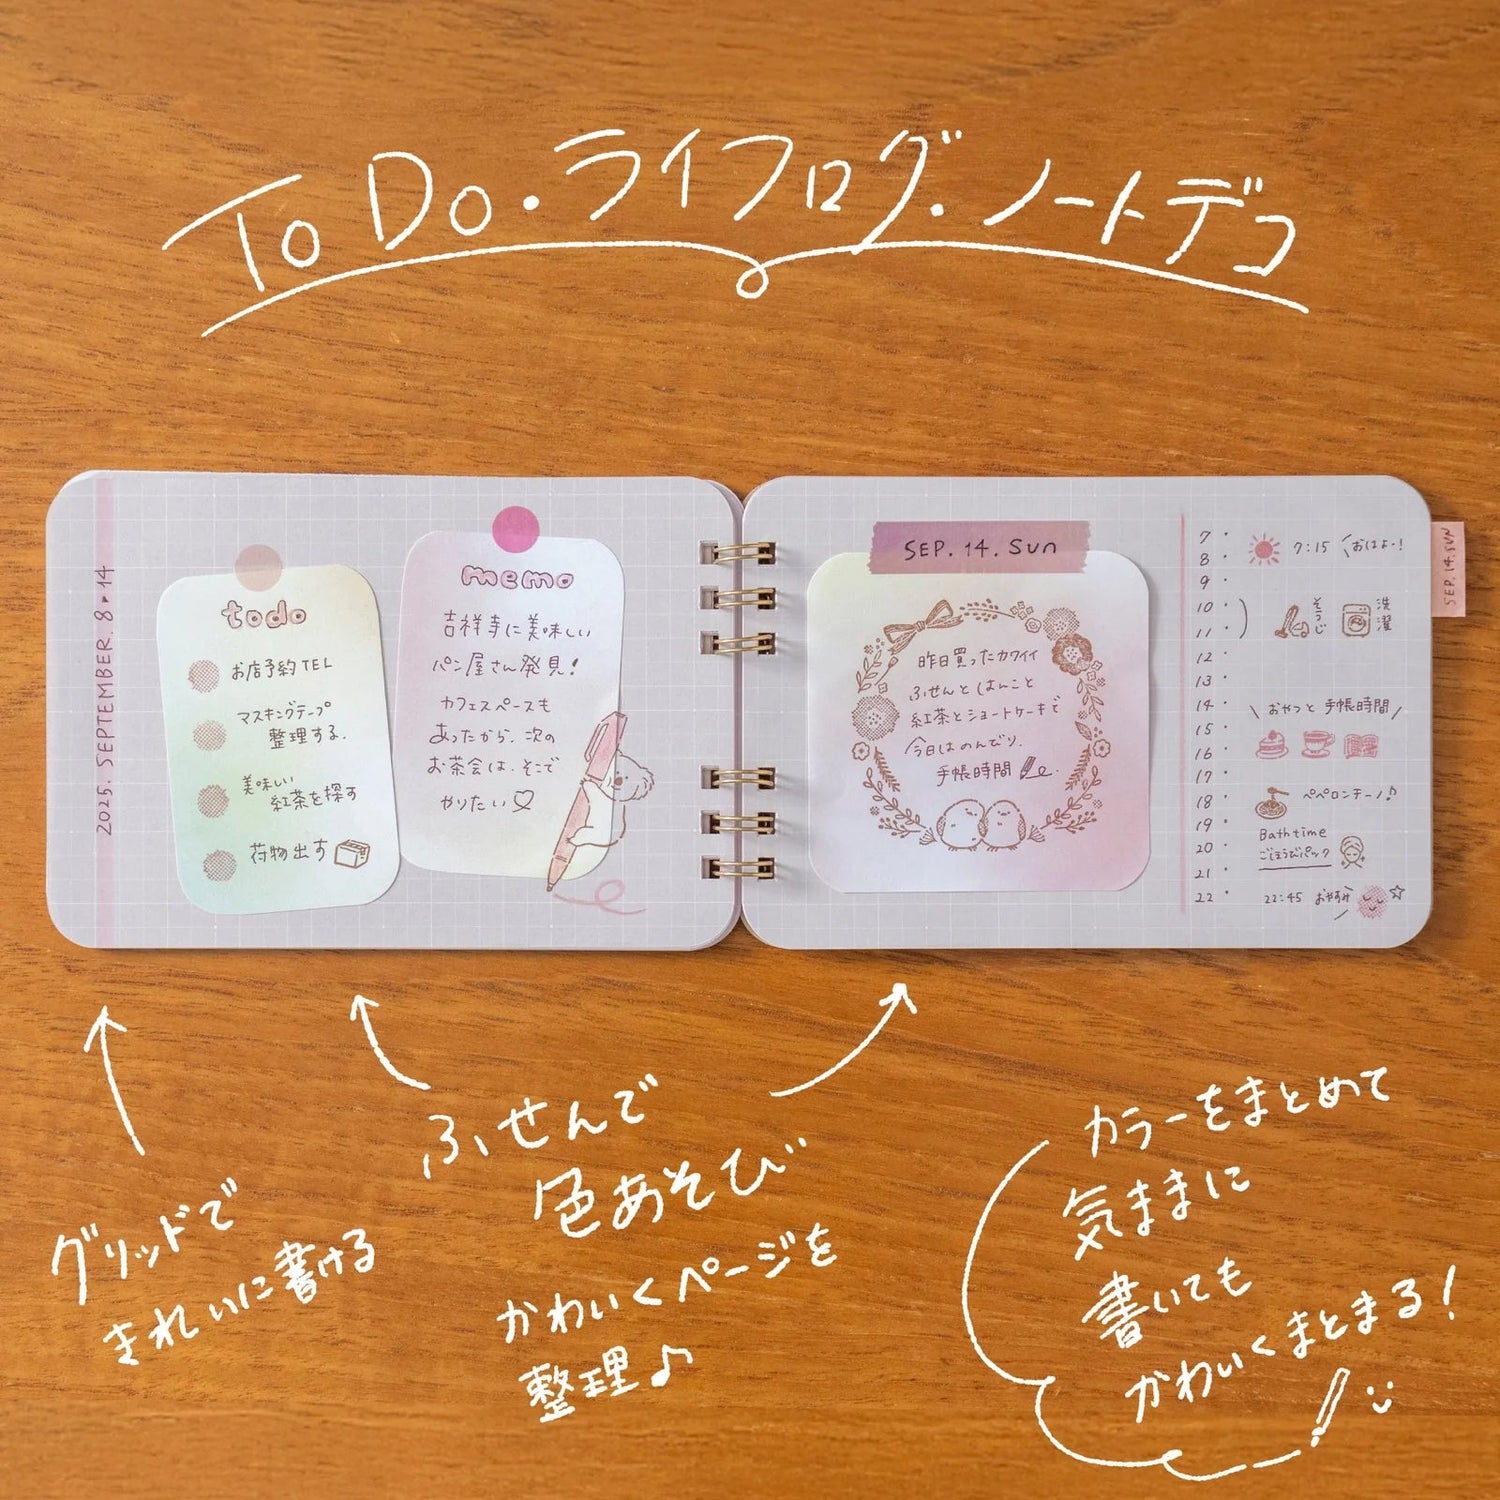 To Do・ライフログ・ノートデコ
2025. SEPTEMBER. 8▸14
todo
お店予約TEL
マスキングテープ
整理する.
美味しい
紅茶を探す
荷物出す
memo
吉祥寺に美味しい
パン屋さん発見!
カフェスペースも
あったから、次の
お茶会は、そこで
やりたい♡
SEP. 14. Sun
昨日買ったカワイイ
ふせんとはんこと
紅茶とショートケーキで
今日はのんびり.
手帳時間
7
8
9
10
11
12
13
14
15
16
17
18
19
20
21
22
7:15 おはよー!
そうじ
洗濯
おやつと手帳時間
ペペロンチーノ♪
Bath time
ごほうびパック
22:45 おやすみ
SEP. 14. SUN
グリッドで
きれいに書ける
ふせんで
色あそび
かわいくページを
整理♪
カラーをまとめて
気ままに
書いても
かわいくまとまる!